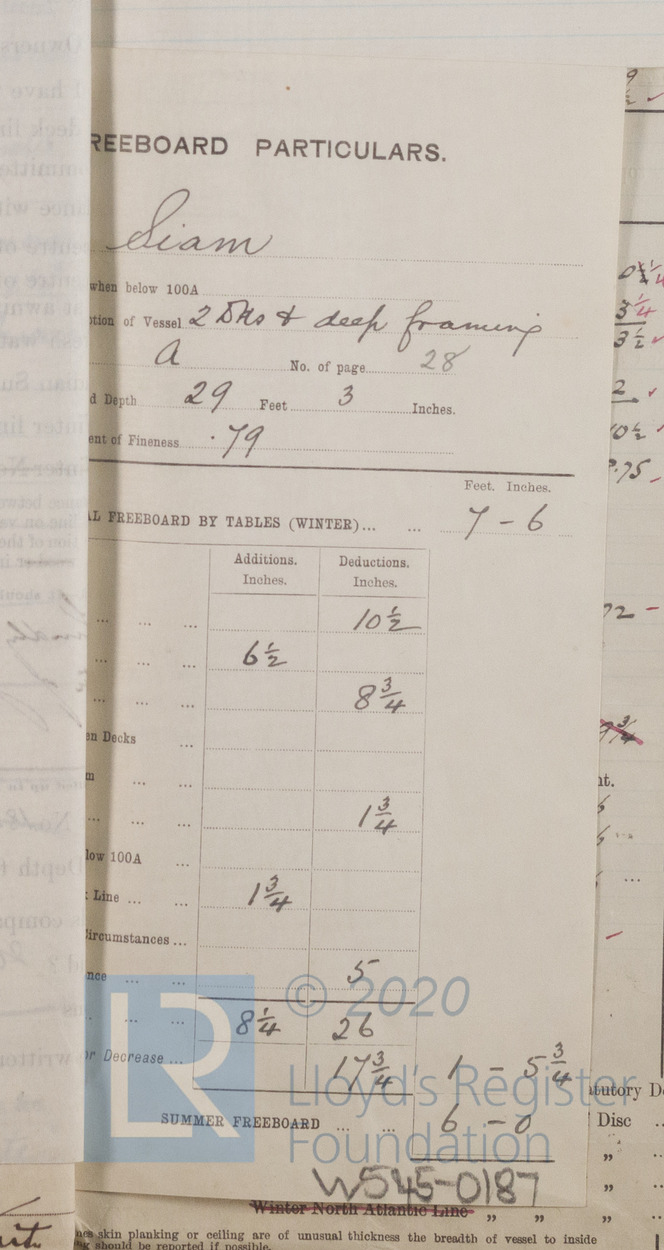 REEBOARD PARTICULARS.
Siam
when below 100A
tion of Vessel 2 Dks & deep framing
A No. of page 28
d Depth 29 Feet 3 Inches.
ent of Fineness .79
Feet. Inches.
L FREEBOARD BY TABLES (WINTER)... ... 7 - 6
Additions. Inches. Deductions. Inches.
... ... ... 10 1/2
... ... ... 6 1/2
... ... ... 8 3/4
en Decks ...
m ... ...
... ... ... 1 3/4
low 100A ...
Line ... ... 1 3/4
Circumstances ...
nce ... ... 5
... ... 8 1/4 26
or Decrease ... 17 3/4 1 - 5 3/4
SUMMER FREEBOARD ... ... 6 - 0
© 2020
LR
Lloyd's Register
Foundation
W545-0187
tutory D
Disc
Winter North Atlantic Line " " "
nes skin planking or ceiling are of unusual thickness the breadth of vessel to inside
should be reported if possible.